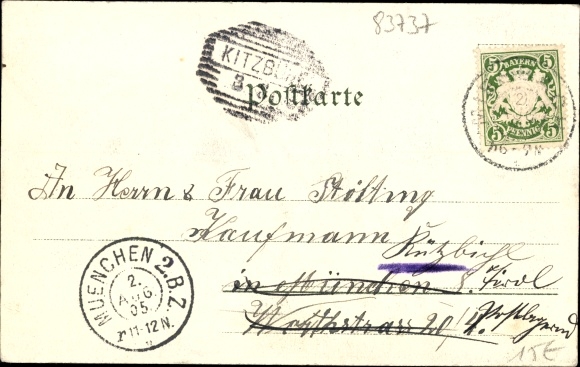 83737
KITZB
Postkarte
5 BAYERN 5
5 PFENNIG 5
An Herrn & Frau Stölting
Kaufmann Kützbichl
in München i. Tirol
20/I. Postlagernd
MUENCHEN 2.B.Z.
2.
AUG.
05.
11-12N.
15€